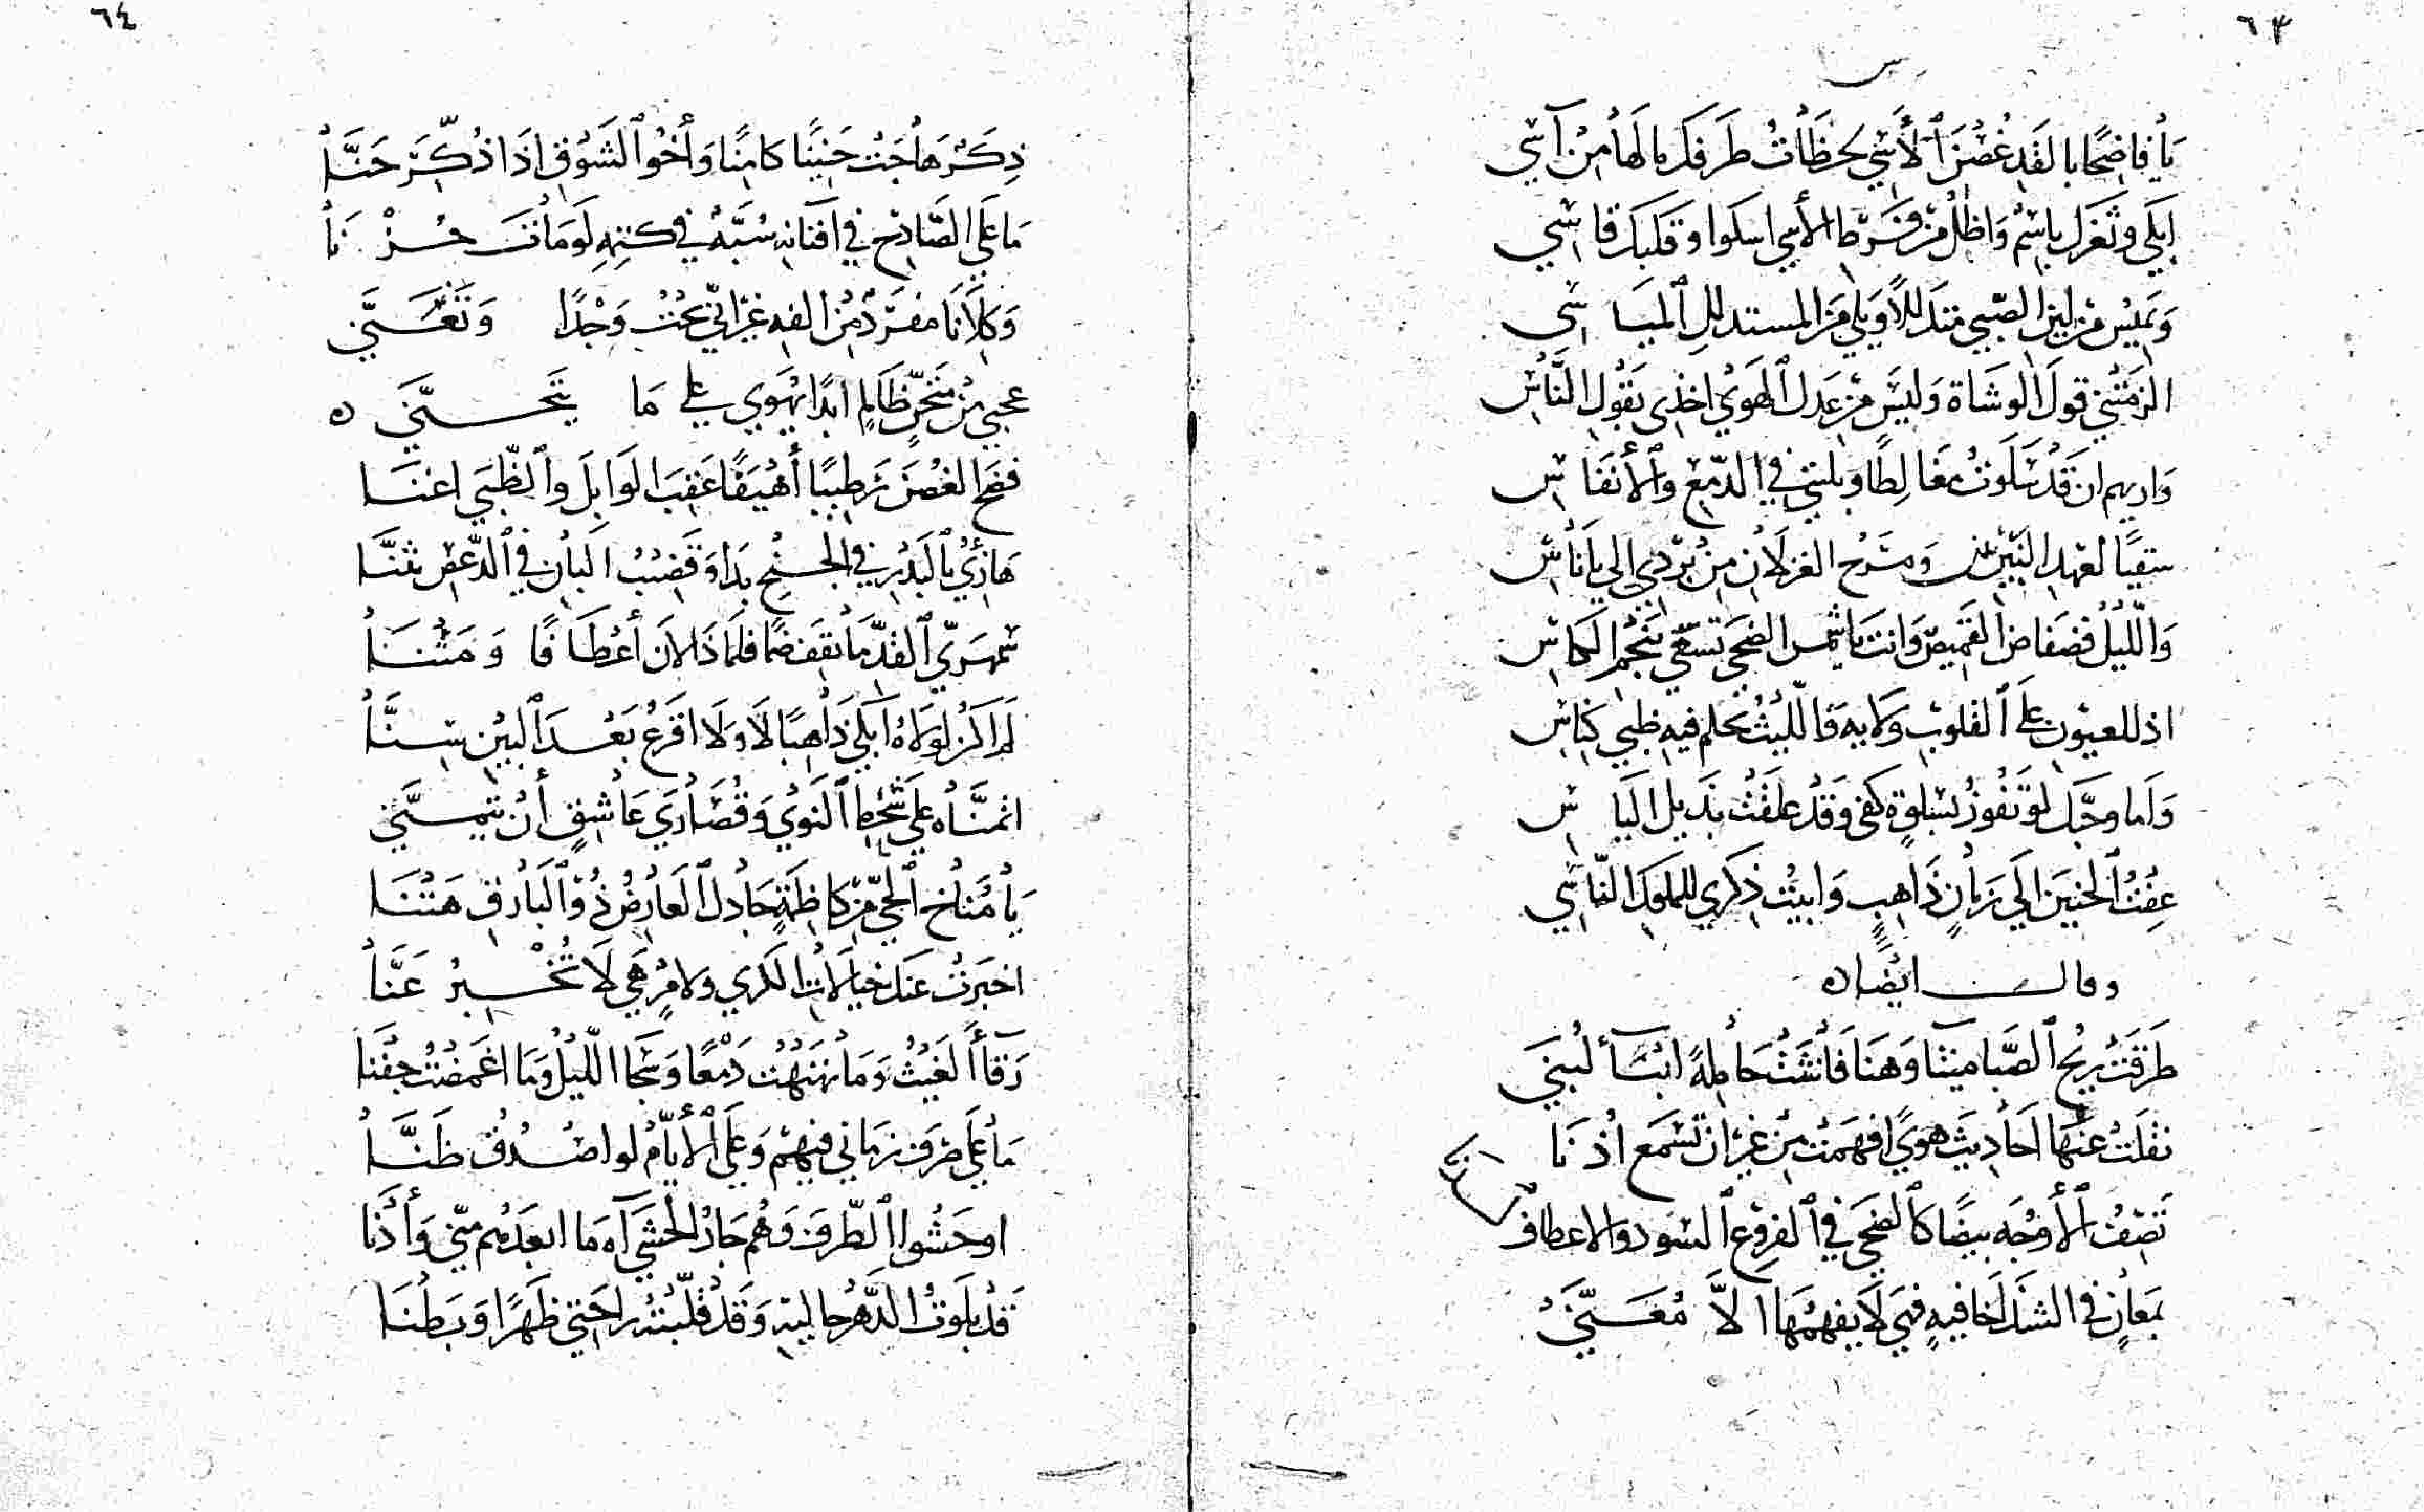 ٦٣
يا فاضحا بالقد غصن الآسي لحظات طرفك ما لها من آسي
ابكي وثغرك باسم واظل من فرط الأسي اسكوا وقلبك قاسي
وتميس من لين الصبي متدللا ويلي من المستدلل المياسي
الزمتني قول الوشاة وليس من عدل الهوي اخذي بقول الناس
واريهم ان قد سلوت مغالطا وبليتي في الدمع والأنفاس
سقيا لعهد النيربين ومسرح الغزلان من بردي الي باناس
والليل فضفاض القميص وانت يا شمس الضحي تسعي بنجم الكاس
اذ للعيون على القلوب ولاية والليث يحكم فيه ظبي كناس
ولما وحبك لو تفوز بسلوة كفي وقد علقت بذيل الياس
عفت الحنين الي زمان ذاهب وابيت ذكري للملوك الناسي
وقال ايضا ه
طرقت ريح الصبا ميثا وهنا فانثنت حاملة انباء لبني
نقلت عنها احاديث هوي افهمت من غير ان تسمع اذنا
تصف الأوجه بيضا كالضحي في الفرع السود والاعطاف لدنا
بمعان في الشذا خافية فهي لا يفهمها الا معني
٦٤
ذكر هاجت حنينا كامنا وأخو الشوق اذا ذكر حنا
ما على الصادح في افنانه شبه في كتبه لو مات حزنا
وكلانا مفرد من الفه غير اني نحت وجدا وتغني
عجبي من متجن ظالم ابدا يهوي علي ما يتجني ه
فضح الغصن رطيبا أهيفا عقب الوابل والظبي اغنا
هازئ بالبدر في الجنح بدا وقضيب البان في الدعص تثنا
سمهري القد ما ثقف ضما فلماذا لان أعطافا ومتنا
لم اكن لولاه ابكي ذاهبا لا ولا اقرع بعد البين سنا
اتمناه على شحط النوي وقصاري عاشق أن يتمني
يا مناخ الحي من كاظمة جادك العارض ذو البارق هتنا
اخبرت عنك خيالات الكري ولامر هي لا تخبر عنا
رقأ الغيث وما نهنهت دمعا وسجا الليل وما اغمضت جفنا
ما على صرف زماني فيهم وعلى الأيام لو اصدق ظنا
اوحشوا الطرف وهم جار الحشي آه ما ابعدهم مني وأدنا
قد بلوت الدهر حاليه وقد قلبته راحتي ظهرا وبطنا